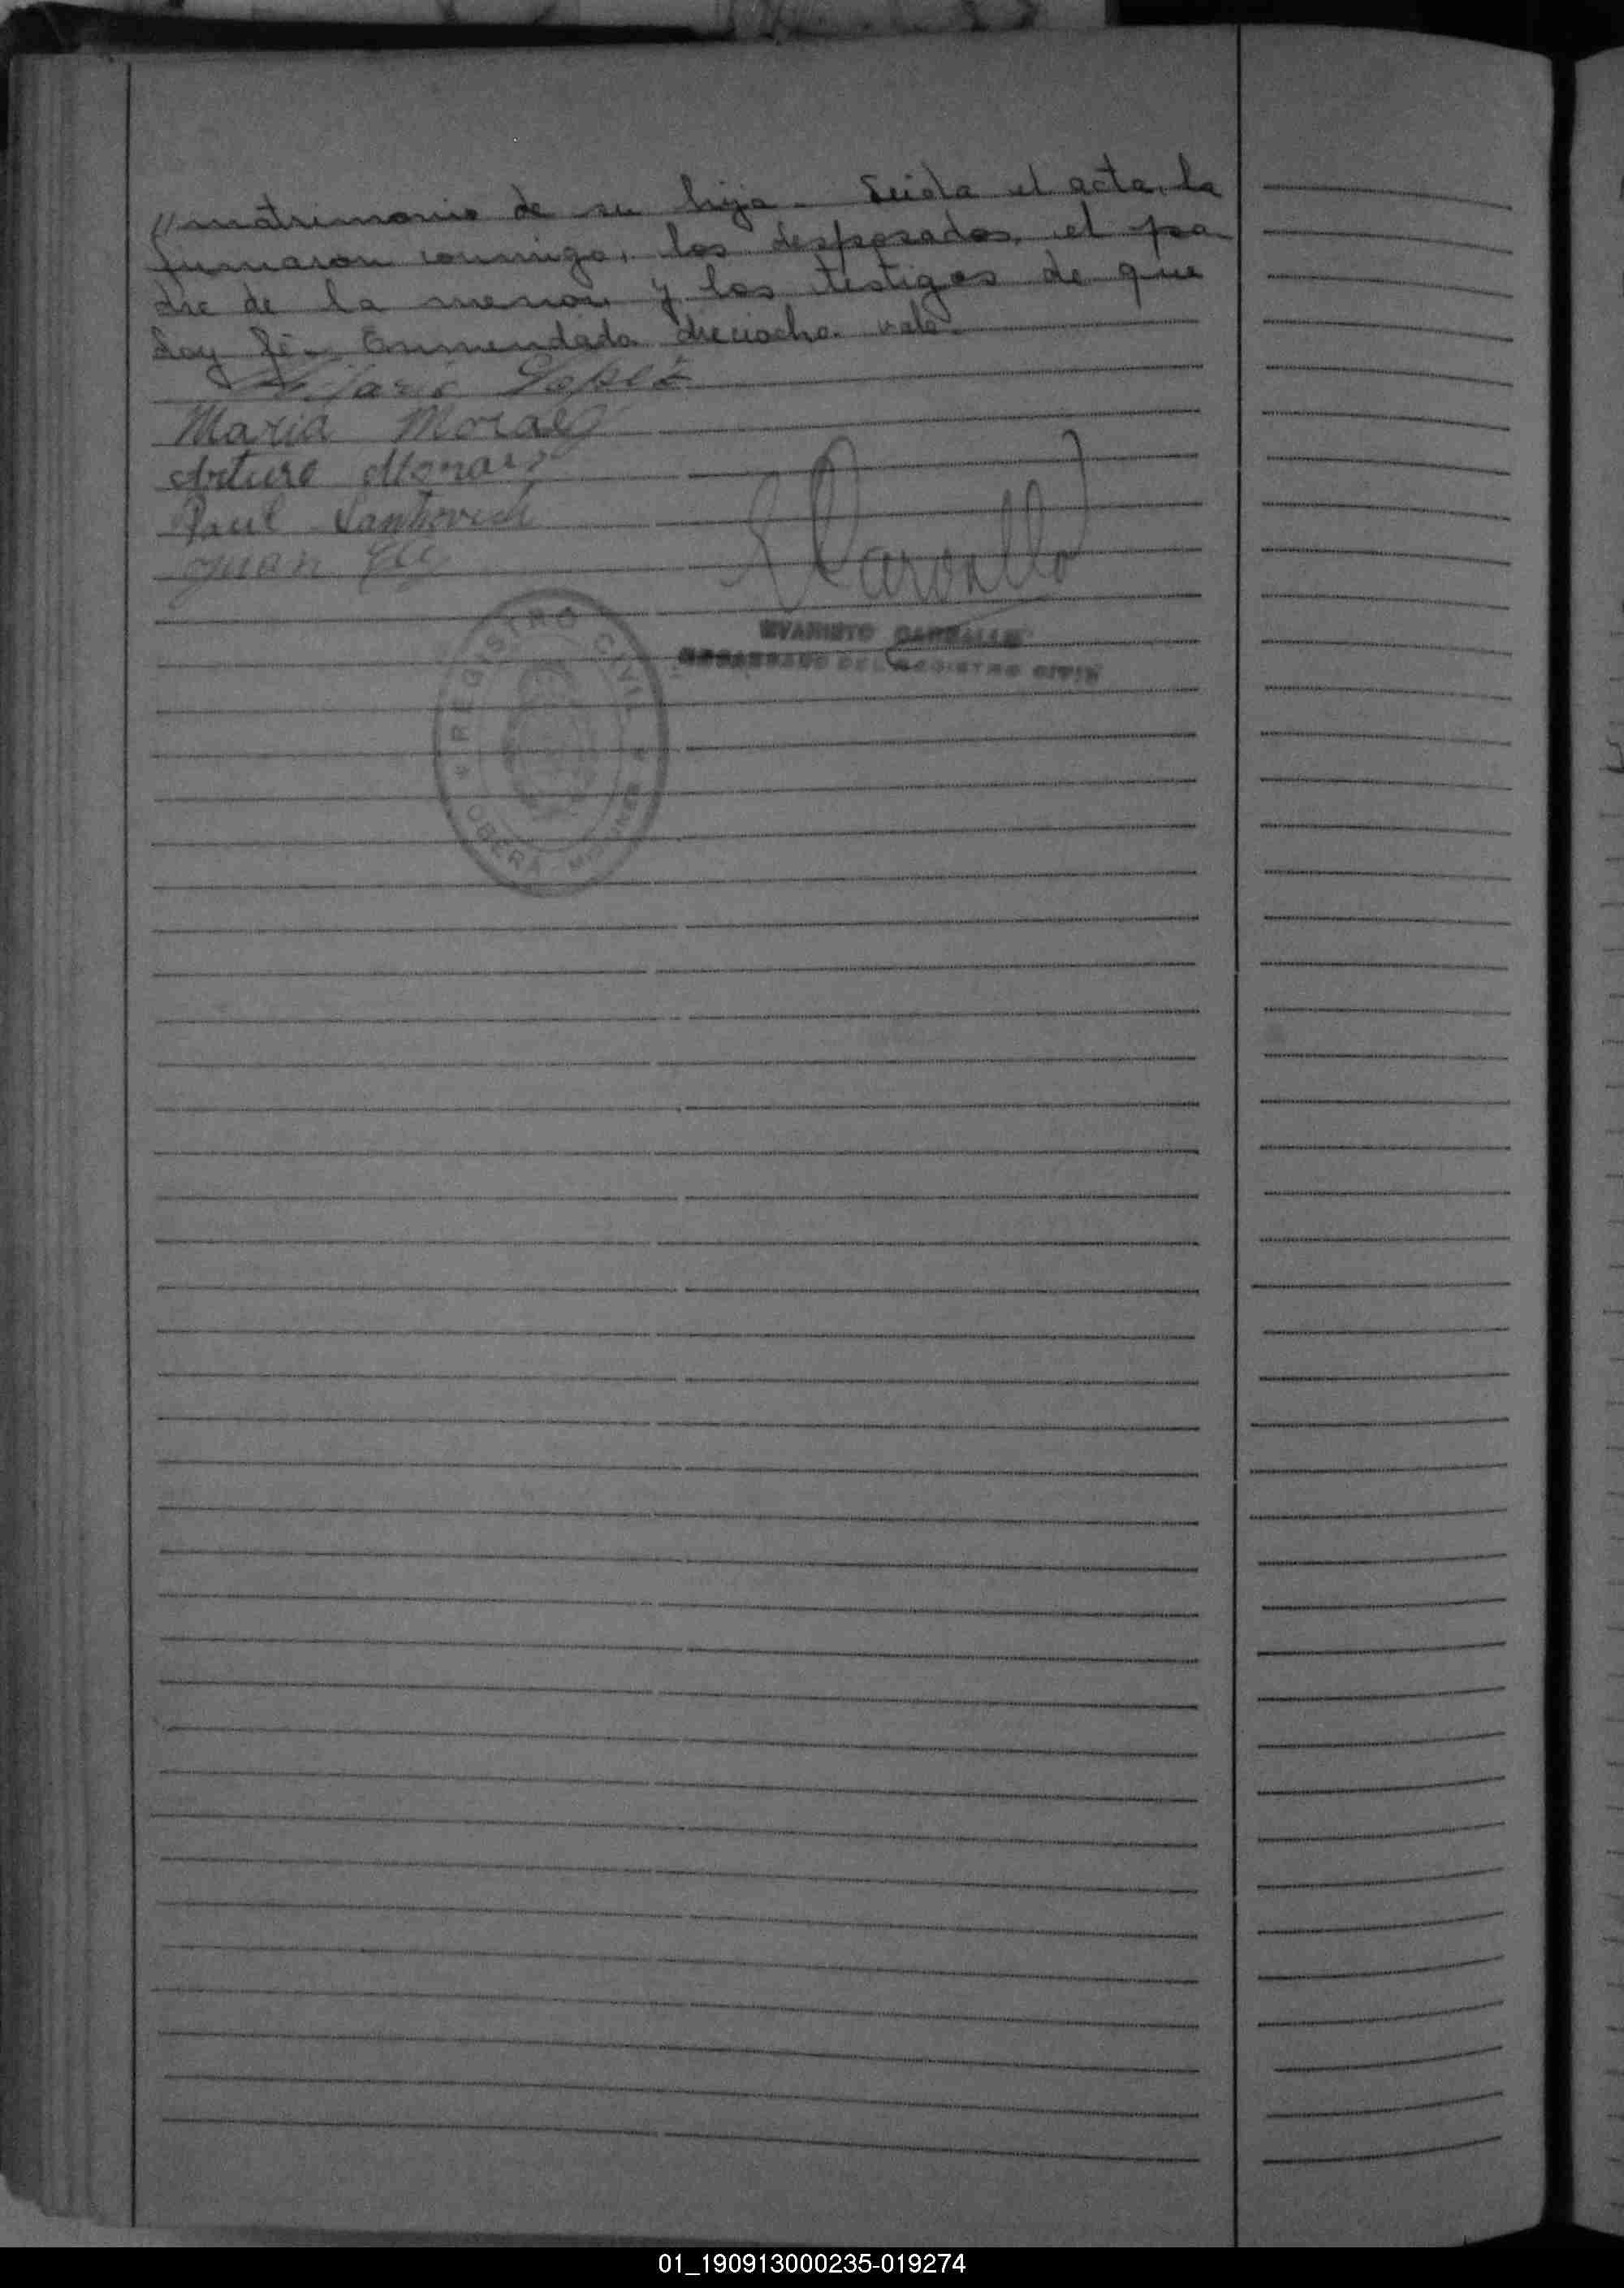 // matrimonio de su hija. Leida el acta, la
firmaron conmigo, los desposados, el pa
dre de la menor y los testigos de que
doy fé. Enmendado dieciocho. vale.
Hilario Lopez
Maria Morais
Arturo Morais
Raul
Juan
Carvallo
EVARISTO CARVALLO
ENCARGADO DEL REGISTRO CIVIL
REGISTRO CIVIL
OBERÁ MISIONES
01_190913000235-019274